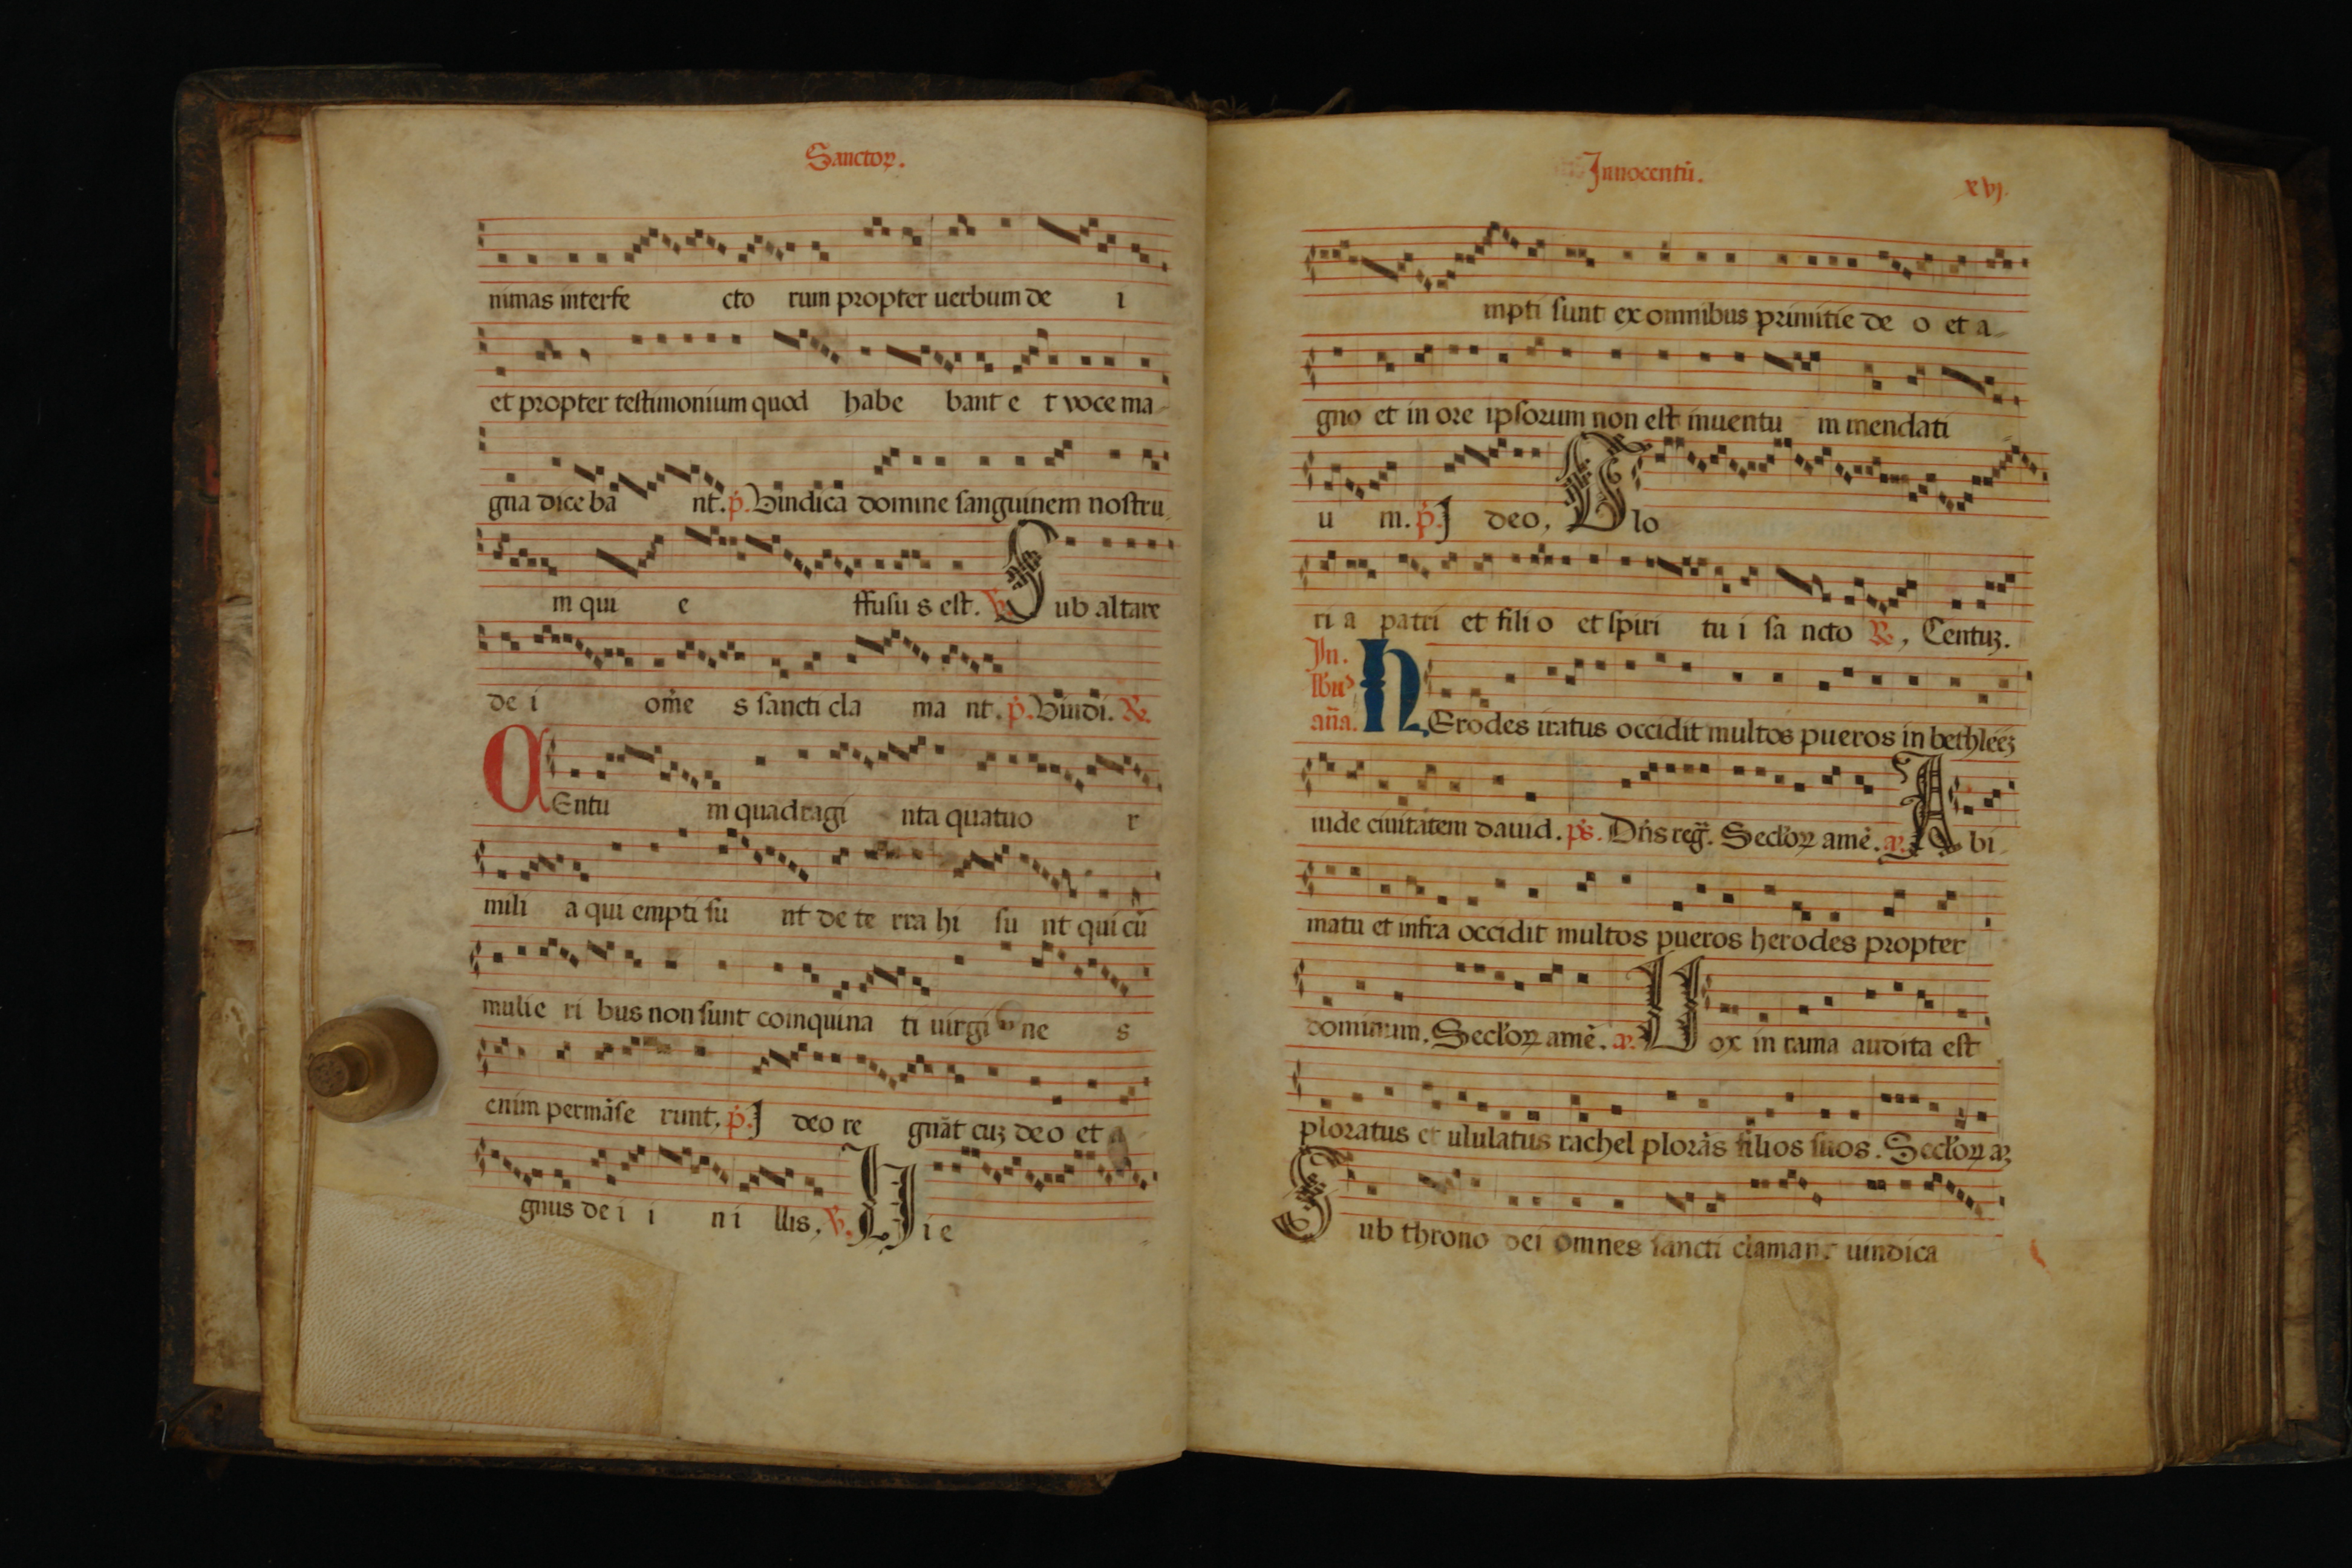 Sanctoꝝ.
nimas interfe cto rum propter uerbum de i
et propter testimonium quod habe bant e t voce ma
gna dice ba nt. p̄. Uindica domine sanguinem nostru
m qui e ffusu s est. ℣. Sub altare
de i om̄e s sancti cla ma nt. p̄. Uindi. ℟.
CEntu m quadragi nta quatuo r
mili a qui empti su nt de te rra hi su nt qui cū
mulie ri bus non sunt coinquina ti uirgi ne s
enim permāse runt. p̄. I deo re gnāt cuʒ deo et a
gnus de i i n i llis. ℣. Hi e
Innocentū. xvj.
mpti sunt ex omnibus primitie de o et a
gno et in ore ipsorum non est inuentu m mendati
u m. p̄. I deo, Glo
ri a patri et fili o et spiri tu i sa ncto ℟, Centuʒ.
In. lbꝰ añа. HErodes iratus occidit multos pueros in bethleēʒ
iude ciuitatem dauid. ps. Dñs reg̃. Secl'oꝝ amē. añ. A bi
matu et infra occidit multos pueros herodes propter
dominum. Secl'oꝝ amē. añ. Uox in rama audita est
ploratus et ululatus rachel plorās filios suos. Secl'oꝝ aʒ
Sub throno dei omnes sancti clamant uindica